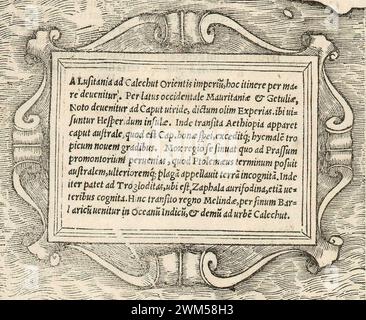 A Luſitania ad Calechut Orientis imperiũ, hoc itinere per ma
re deuenitur. Per latus occidentale Mauritaniæ & Getuliæ,
Noto deuenitur ad Caput uiride, dictum olim Experias. ibi ui=
ſuntur Heſperidum inſulæ. Inde tranſita Aethiopia apparet
caput auſtrale, quod eſt Cap. bonæ ſpei, exceditq; hycmalē tro
picum nouem gradibus. Not regio ſe ſinuat quo ad Praſſum
promontorium peruenias, quod Ptolemæus terminum poſuit
auſtralem, ulterioremq; plagã appellauit terrã incognitã. Inde
iter patet ad Trogloditas, ubi eſt, Zaphala aurifodina, etiã ue=
teribus cognita. Hinc tranſito regno Melindæ, per ſinum Bar=
baricũ uenitur in Oceanũ Indicũ, & demũ ad urbē Calechut.
alamy
Image ID: 2WM58H3
www.alamy.com